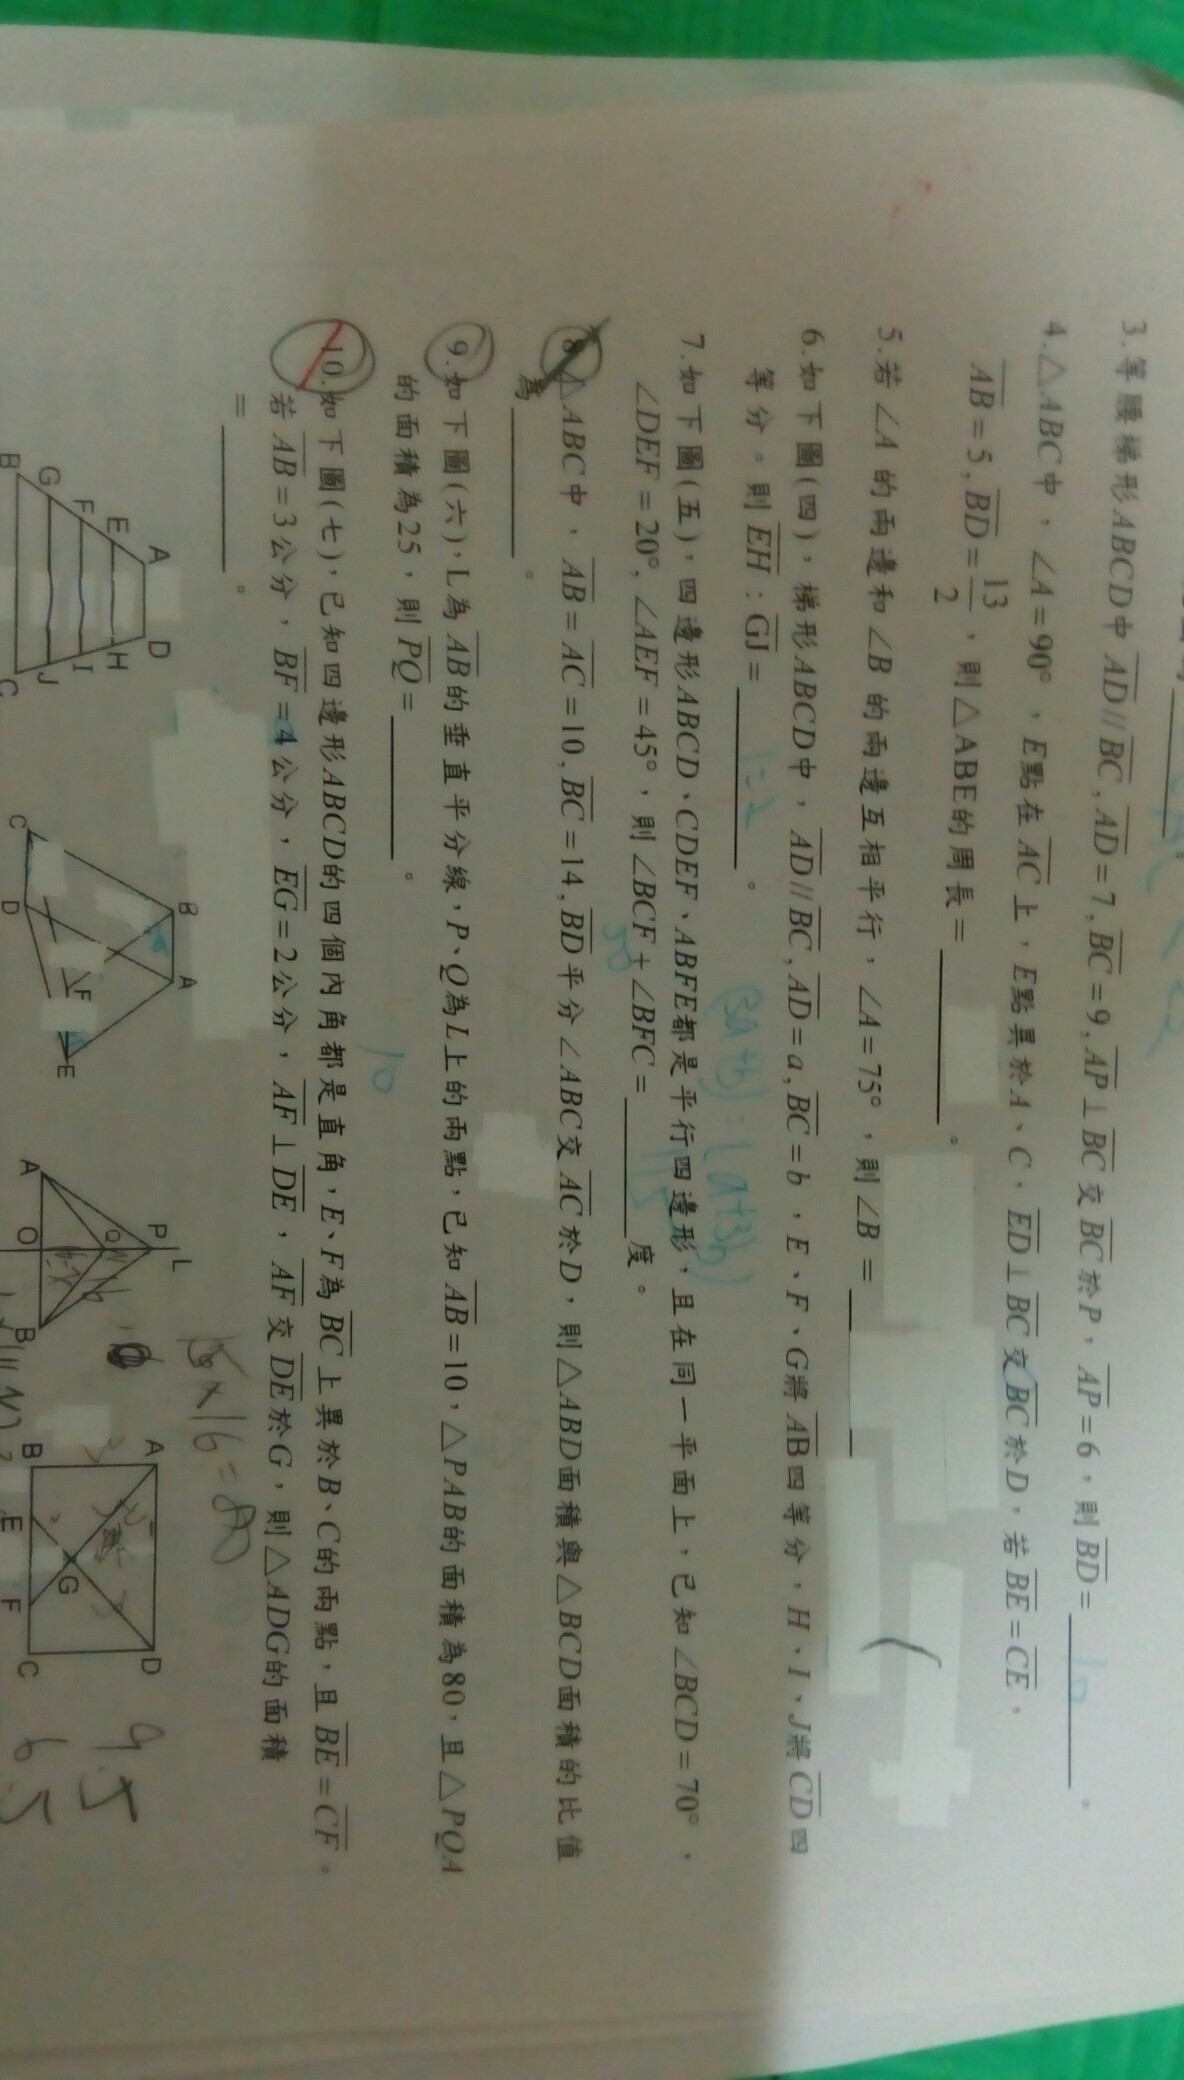 3.等腰梯形ABCD中AD//BC,AD=7,BC=9,AP⊥BC交BC於P,AP=6,則BD= 10 。
4.△ABC中,∠A=90°,E點在AC上,E點異於A、C,ED⊥BC交BC於D,若BE=CE,
AB=5,BD=13/2,則△ABE的周長=
。
5.若∠A的兩邊和∠B的兩邊互相平行,∠A=75°,則∠B=
6.如下圖(四),梯形ABCD中,AD//BC,AD=a,BC=b,E、F、G將AB四等分,H、I、J將CD四
等分。則EH:GJ=
。
(3a+b):(a+3b)
7.如下圖(五),四邊形ABCD、CDEF、ABFE都是平行四邊形,且在同一平面上,已知∠BCD=70°,
∠DEF=20°,∠AEF=45°,則∠BCF+∠BFC= 115 度。
8.△ABC中,AB=AC=10,BC=14,BD平分∠ABC交AC於D,則△ABD面積與△BCD面積的比值
為 。
9.如下圖(六),L為AB的垂直平分線,P、Q為L上的兩點,已知AB=10,△PAB的面積為80,且△PQA
的面積為25,則PQ= 。
10
10.如下圖(七),已知四邊形ABCD的四個內角都是直角,E、F為BC上異於B、C的兩點,且BE=CF。
若AB=3公分,BF=4公分,EG=2公分,AF⊥DE,AF交DE於G,則△ADG的面積
= 。
A D
E H
F I
G J
B C
B A
F
E
C D
P L
Q
A O B
A D
G
B E F C
9.5
6.5